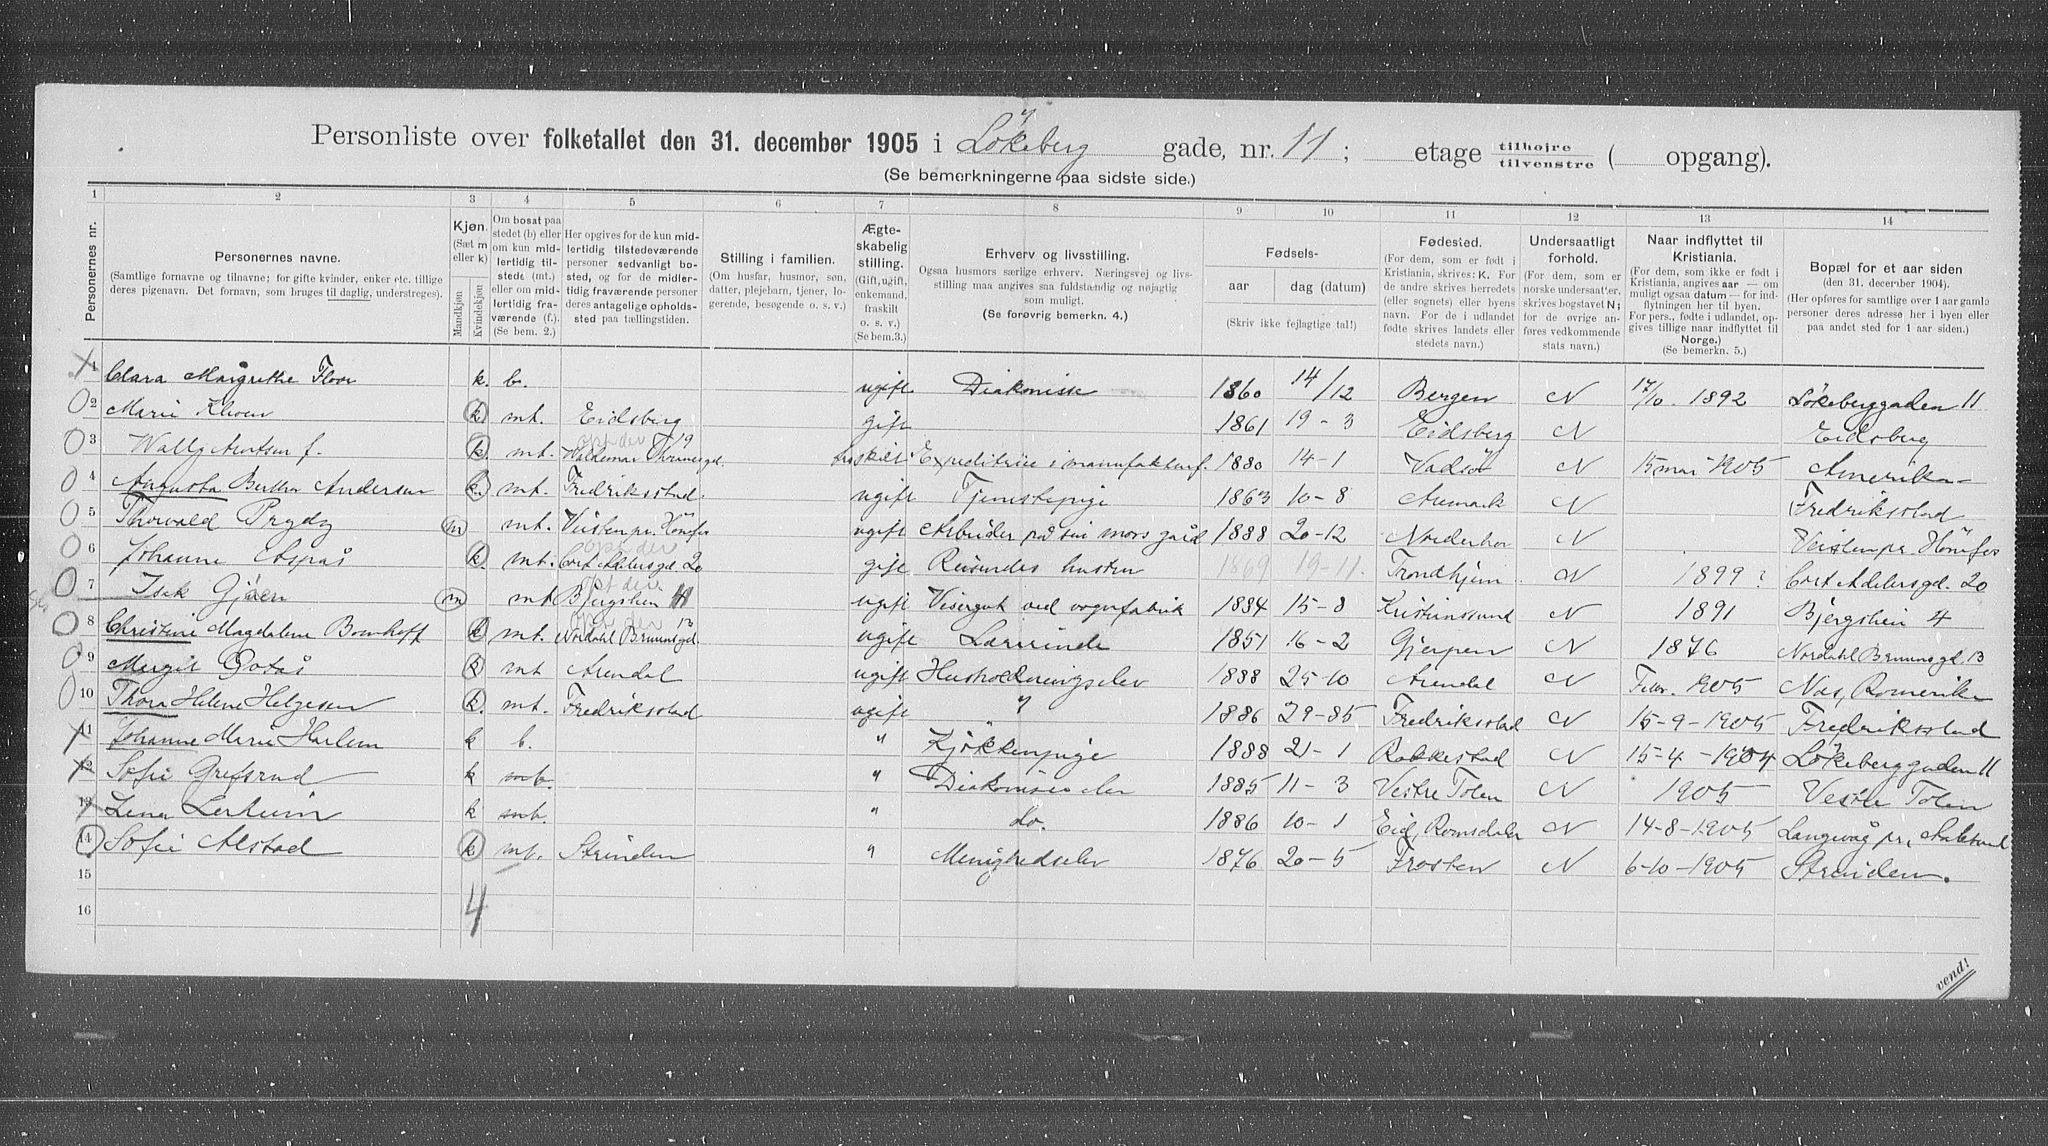 Personliste over folketallet den 31. december 1905 i Løkeberg gade, nr. 11; etage tilhøjre tilvenstre ( opgang).
(Se bemerkningerne paa sidste side.)
1 2 3 4 5 6 7 8 9 10 11 12 13 14
Personernes nr.
Personernes navne.
(Samtlige fornavne og tilnavne; for gifte kvinder, enker etc. tillige deres pigenavn. Det fornavn, som bruges til daglig, understreges).
Kjøn.
(Sæt m eller k)
Mandkjøn Kvindekjøn
Om bosat paa stedet (b) eller om kun midlertidig tilstede (mt.) eller om midlertidig fraværende (f.). (Se bem. 2.)
Her opgives for de kun midlertidig tilstedeværende personer sedvanligt bosted, og for de midlertidig fraværende personer deres antagelige opholdssted paa tællingstiden.
Stilling i familien.
(Om husfar, husmor, søn, datter, plejebarn, tjener, logerende, besøgende o. s. v.)
Ægteskabelig stilling.
(Gift, ugift, enkemand, fraskilt o. s. v.) (Se bem.3.)
Erhverv og livsstilling.
Ogsaa husmors særlige erhverv. Næringsvej og livsstilling maa angives saa fuldstændig og nøjagtig som muligt.
(Se forøvrig bemerkn. 4.)
Fødsels-
aar dag (datum)
(Skriv ikke fejlagtige tal!)
Fødested.
(For dem, som er født i Kristiania, skrives: K. For de andre skrives herredets (eller sognets) eller byens navn. For de i udlandet fødte skrives landets eller stedets navn.)
Undersaatligt forhold.
(For dem, som er norske undersaatter, skrives bogstavet N; for de øvrige anføres vedkommende stats navn.)
Naar indflyttet til Kristiania.
(For dem, som ikke er født i Kristiania, angives aar — om muligt ogsaa datum — for indflytningen her til byen. For pers., fødte i udlandet, opgives tillige naar indflyttet til Norge.)
(Se bemerkn. 5.)
Bopæl for et aar siden
(den 31. december 1904).
(Her opføres for samtlige over 1 aar gamle personer deres adresse her i byen eller paa andet sted for 1 aar siden.)
1 Clara Margrethe Floor k. b. ugift Diakonisse 1860 14/12 Bergen N 17/10 1892 Løkeberggaden 11
2 Marie k mt. Eidsberg gift 1861 19-3 Eidsberg N Eidsberg
3 Wally f. k. mt. Waldemar Thranesgd. 19 fraskilt Expeditrice i manufakturf. 1880 14-1 Vadsø N 15 mai 1905 Amerika
4 Augusta Berthe Andersen k. mt. Fredriksstad. ugift Tjenestepige 1863 10-8 Aremark N Fredriksstad
5 Thorvald Prydz m mt. pr. Hønefos ugift Arbeider på sin mors gård 1888 20-12 Norderhov N pr. Hønefos
6 Johanne Aspås k. mt. Cort Adelersgd 20 gift Reisendes hustru 1869 19-11. Trondhjem N 1899? Cort Adelersgd. 20
7 Isak Gjøen m mt Bjergslien 4 ugift Visergut ved vognfabrik 1884 15-8 Kristiansund N 1891 Bjergslien 4
8 Christine Magdalene Bomhoff k mt. Nordahl Brunnsgd 13 ugift Lærerinde 1851 16-2 Gjerpen N 1876 Nordahl Brunnsgd. 13
9 Margit k mt Arendal ugift Husholdningselev 1888 25-10 Arendal N Febr. 1905 Nas, Romerike
10 Thora Helene Helgesen k. mt. Fredriksstad ugift " 1886 29-85 Fredriksstad N 15-9-1905 Fredriksstad
11 Johanne Marie Harlem k b. " Kjøkkenpige 1888 21-1 Rakkestad N 15-4-1904 Løkeberggaden 11
12 Sofie Grefsrud k mb. " Diakonisseelev 1885 11-3 Vestre Toten N 1905 Vestre Toten
13 Lena k mb. " do. 1886 10-1 Eid, Romsdalen N 14-8-1905 Langevåg pr. Aalesund
14 Sofie Alstad k mt. Strinden " Menighedselev 1876 20-5 Frosten N 6-10-1905 Strinden.
15
16
4
vend!